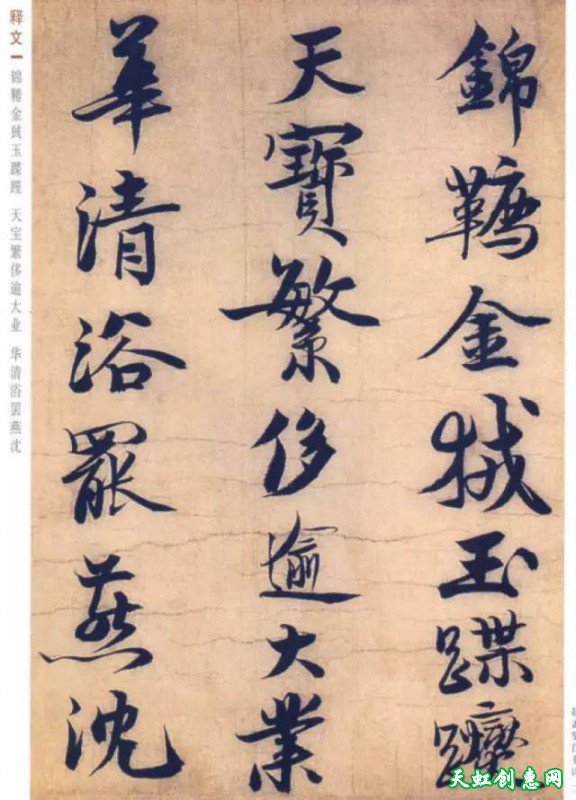 錦韉金狨玉蹀躞
天寶繁侈逾大業
華清浴罷燕沈
释文 锦鞯金狨玉蹀躞 天宝繁侈逾大业 华清浴罢燕沈
天虹创惠网